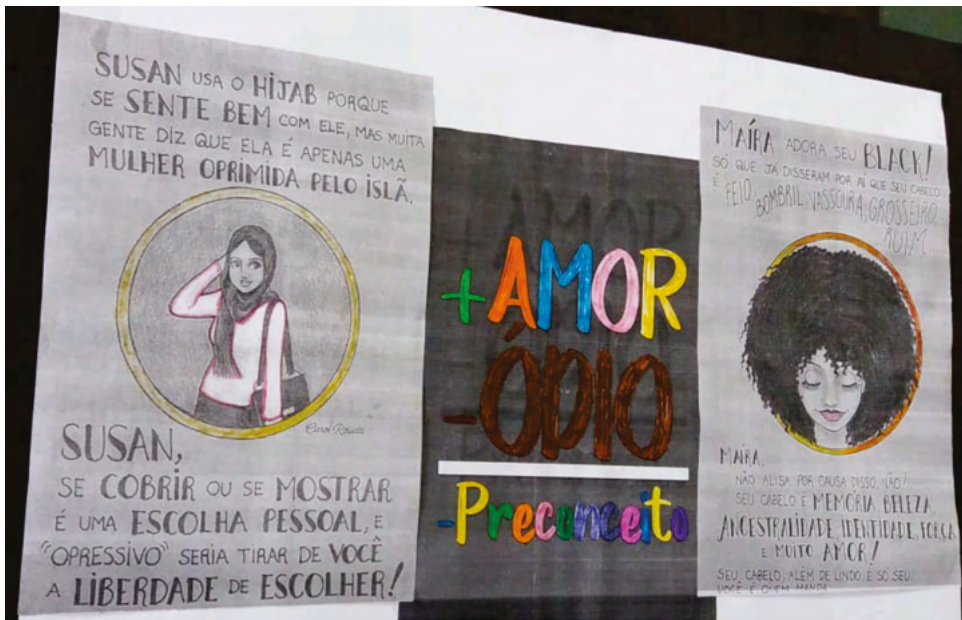 SUSAN USA O HIJAB PORQUE
SE SENTE BEM COM ELE, MAS MUITA
GENTE DIZ QUE ELA É APENAS UMA
MULHER OPRIMIDA PELO ISLÃ.
Carol Rossetti
SUSAN,
SE COBRIR OU SE MOSTRAR
É UMA ESCOLHA PESSOAL, E
"OPRESSIVO" SERIA TIRAR DE VOCÊ
A LIBERDADE DE ESCOLHER!
+AMOR
-ÓDIO
-Preconceito
MAÍRA ADORA SEU BLACK!
SÓ QUE JÁ DISSERAM POR AÍ QUE SEU CABELO
É FEIO, BOMBRIL, VASSOURA, GROSSEIRO,
RUIM...
MAÍRA,
NÃO ALISA POR CAUSA DISSO, NÃO!
SEU CABELO É MEMÓRIA, BELEZA,
ANCESTRALIDADE, IDENTIDADE, FORÇA
E MUITO AMOR!
SEU CABELO, ALÉM DE LINDO, É SÓ SEU.
VOCÊ É QUEM MANDA